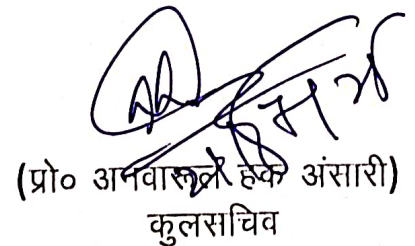 (प्रो० अनवारूल हक अंसारी)
कुलसचिव